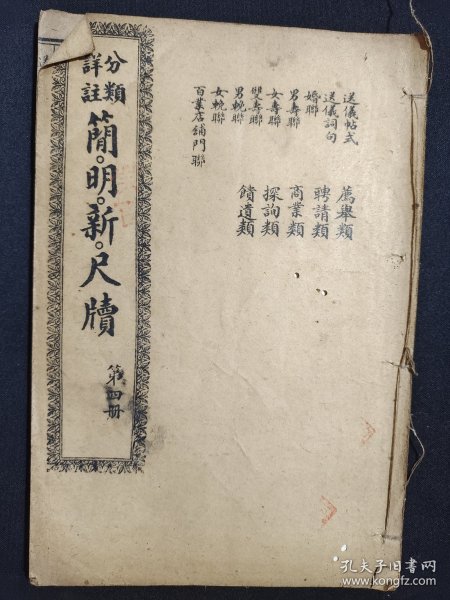 送儀帖式
送儀詞句
婚聯
男壽聯
女壽聯
雙壽聯
男輓聯
女輓聯
百業店舖門聯
薦舉類
聘請類
商業類
探詢類
饋遺類
分類
詳註
簡明新尺牘
第四册
孔夫子旧书网
www.kongfz.com